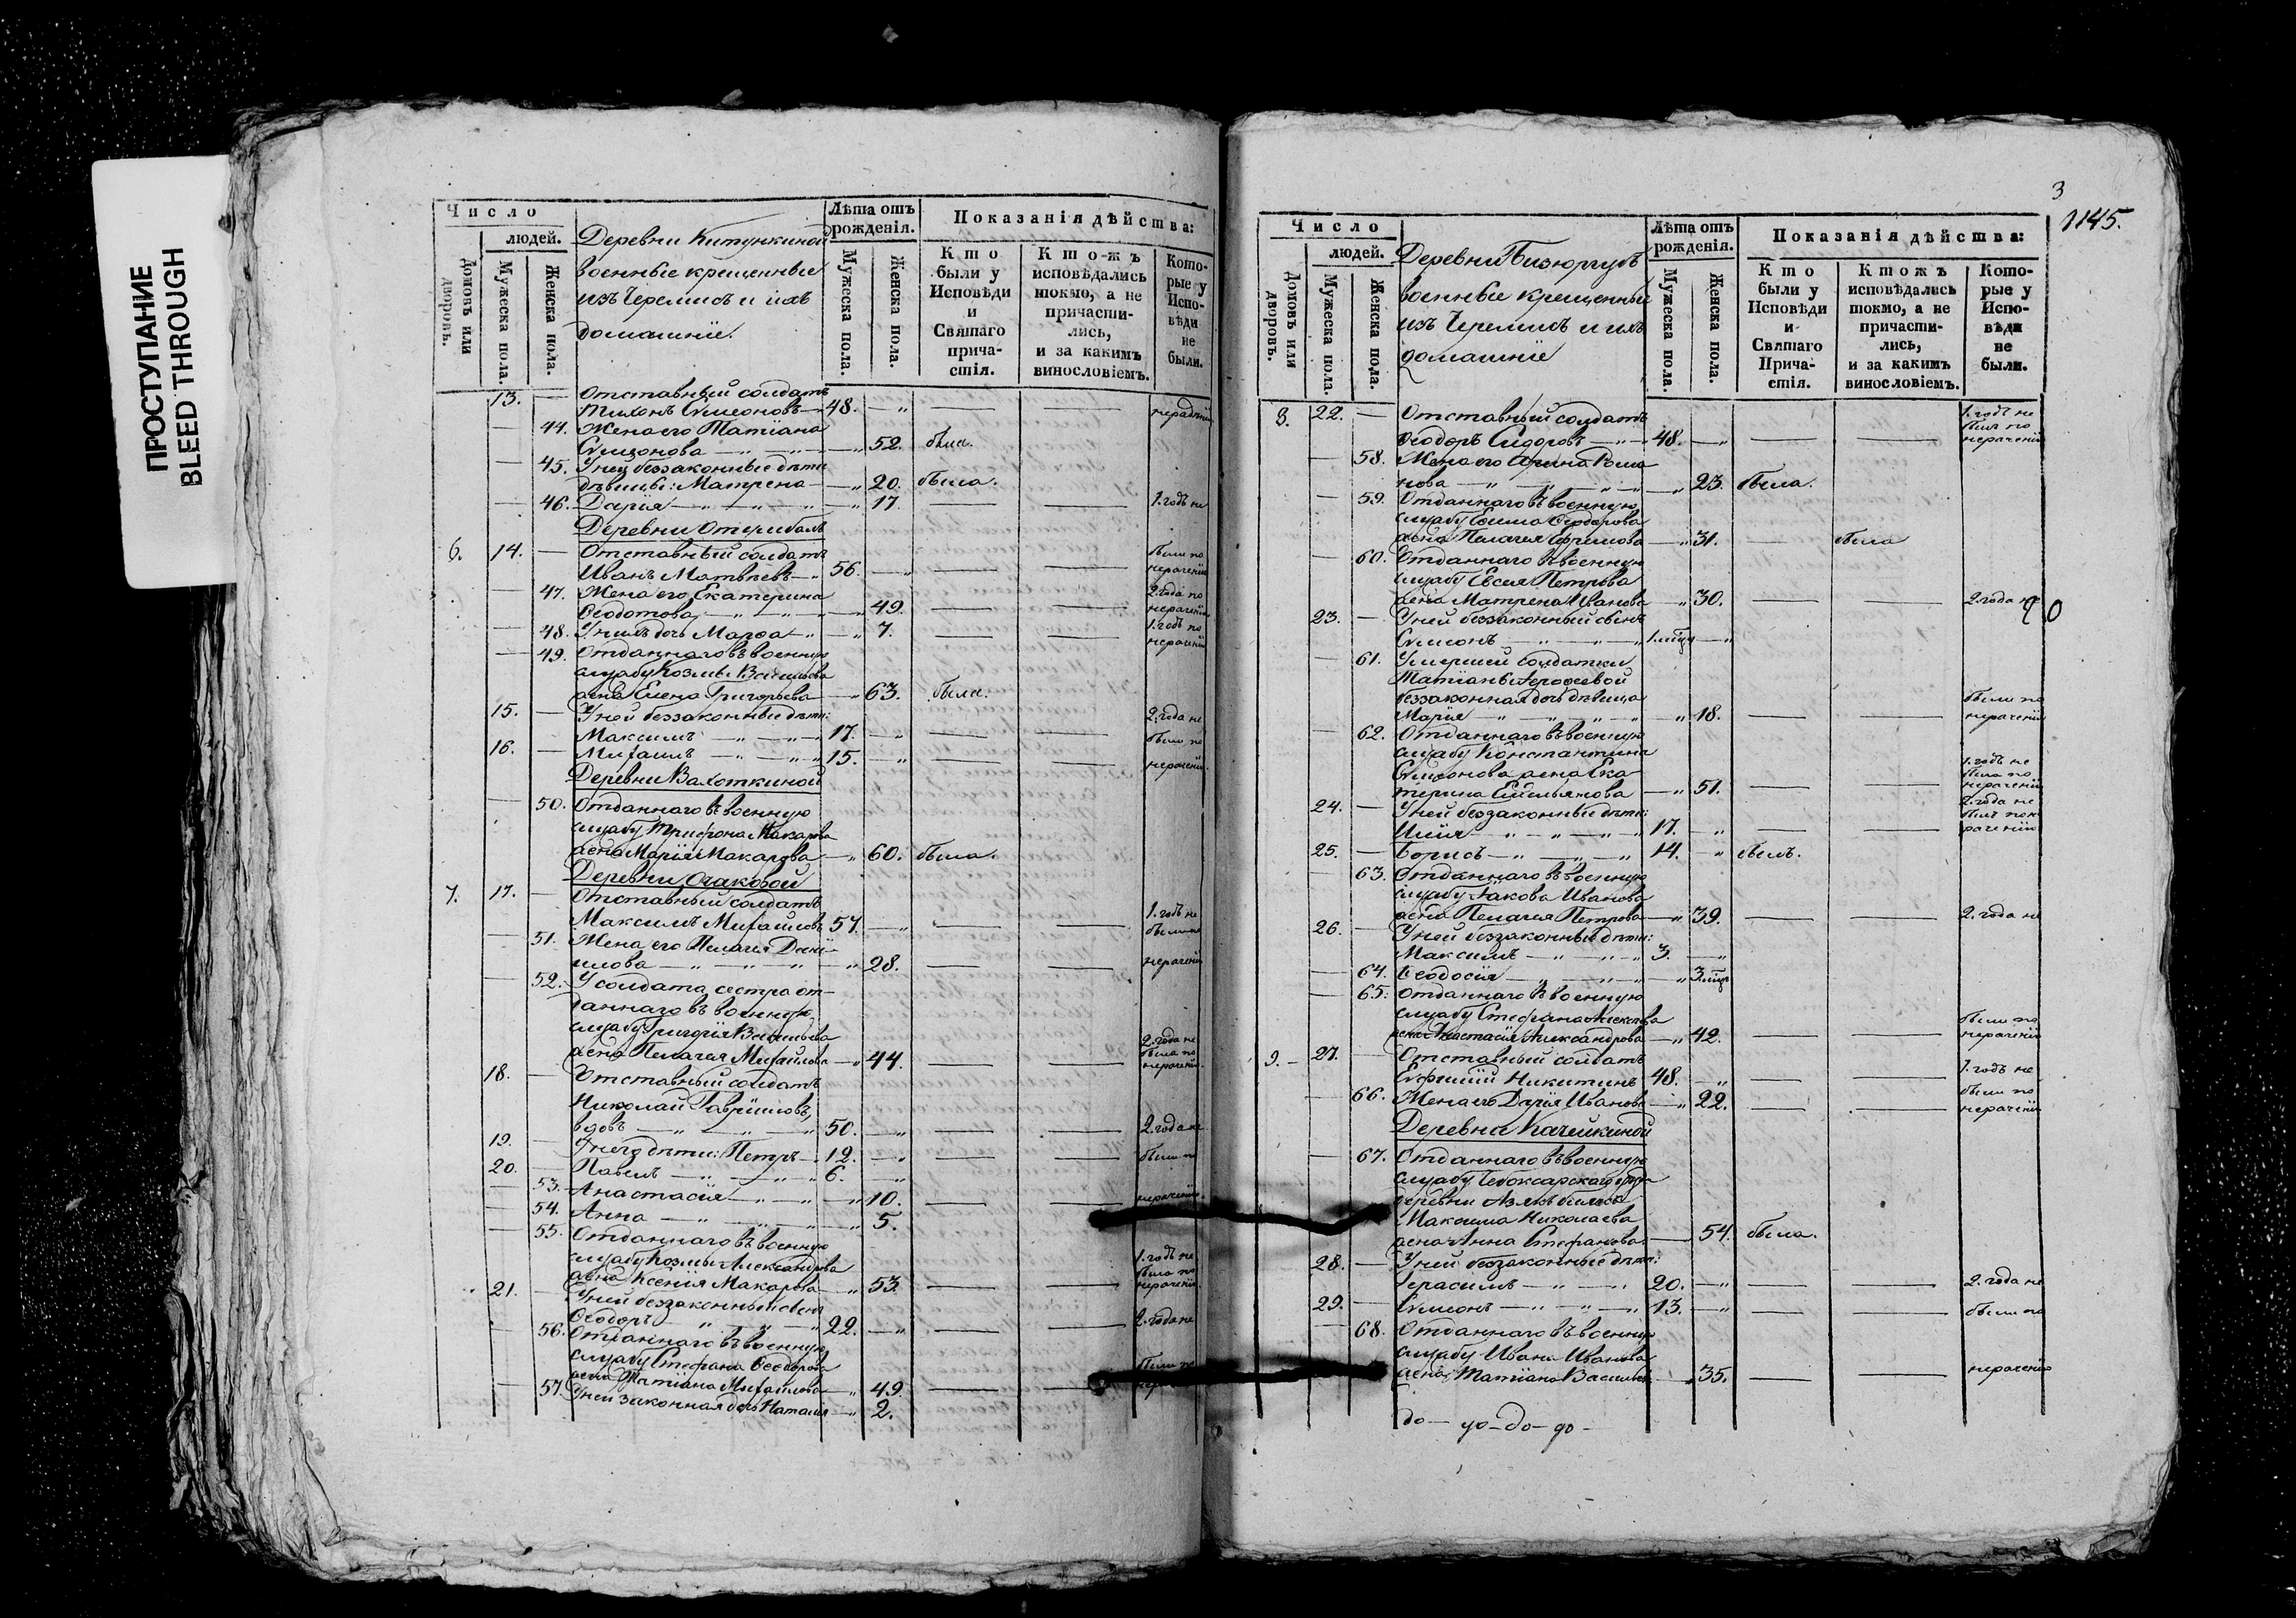 ПРОСТУПАНИЕ
BLEED THROUGH
Число
людей.
Домовъ или дворовъ.
Мужеска пола.
Женска пола.
Деревни Китункиной
военные крещенные
изъ Черемисъ и ихъ
домашніе.
Лѣта отъ рожденія.
Мужеска пола.
Женска пола.
Показанія дѣйства:
Кто были у Исповѣди и Святаго причастія.
Кто-жъ исповѣдались токмо, а не причастились, и за какимъ винословіемъ.
Которые у Исповѣди не были.
13. — Отставный солдатъ
Тихонъ Симеоновъ — 48. — „
— 44. Жена его Татіана
Симеонова — „ 52. была.
— 45. У нец беззаконные дѣти
дѣвицы: Матрена — „ 20. была.
— 46. Дарія — „ 17. 1. годъ не
Деревни
6. 14. — Отставный солдатъ были по
Иванъ Матвѣевъ — „ 56. — „ нераченію
— 47. Жена его Екатерина 2. года по
Ѳеодотова — „ 49. нераченію
— 48. У нихъ дочь Марѳа — „ 7. 1. годъ по
нераченію
— 49. Отданнаго въ военную
службу Козмы Васильева
жена Елена Григорьева — „ 63. была.
15. — У ней беззаконные дѣти: 2. года не
Максимъ — „ 17. — „ были по
16. — Михаилъ — „ 15. — „ нераченію.
Деревни Вахоткиной
— 50. Отданнаго въ военную
службу Трифона Макарова
жена Марія Макарова — „ 60. была.
Деревни Очаковой
7. 17. — Отставный солдатъ
Максимъ Михайловъ 57. — „ 1. годъ не
— 51. Жена его Пелагея Дані-
илова — „ 28. нераченію
— 52. У солдата сестра от-
даннаго въ военную
службу Григорія Васильева
жена Пелагея Михайлова — „ 44. 2. года не была по нераченію.
18. — Отставный солдатъ
Николай Гавриловъ,
вдовъ — „ 50. — „ 2. года не
19. — У него дѣти: Петръ — 12. — „ были по
20. — Павелъ — „ 6. — „
— 53. Анастасія — „ 10. нераченію.
— 54. Анна — „ 5.
— 55. Отданнаго въ военную
службу Козмы Александрова
жена Ксенія Макарова — „ 53. 1. годъ не была по нераченію
21. — У ней беззаконный сынъ
Ѳеодоръ — „ 22. — „ 2. года не
— 56. Отданнаго въ военную
службу Стефана Ѳеодорова
жена Татіана Михайлова — „ 49. были по
— 57. У ней законная дочь Наталія — „ 2.
3
1145.
Число
людей.
Домовъ или дворовъ.
Мужеска пола.
Женска пола.
Деревни Пизюргубъ
военные крещенные
изъ Черемисъ и ихъ
домашніе
Лѣта отъ рожденія.
Мужеска пола.
Женска пола.
Показанія дѣйства:
Кто были у Исповѣди и Святаго Причастія.
Ктожъ исповѣдались токмо, а не причастились, и за какимъ винословіемъ.
Которые у Исповѣди не были.
8. 22. — Отставный солдатъ 1. годъ не былъ по
Ѳеодоръ Сидоровъ — „ 48. — „ нераченію
— 58. Жена его Агрипа Рома-
нова — „ 23. была.
— 59. Отданнаго въ военную
службу Ѳеодорова
жена Пелагея Ефремова — „ 31. — была
— 60. Отданнаго въ военную
службу Евсея Петрова
жена Матрена Иванова — „ 30. 2. года не
23. — У ней беззаконный сынъ
Симеонъ — „ 1. мѣц — „
— 61. Умершей солдатки
Татіаны
беззаконная дочь дѣвица были по
Марія — „ 18. нераченію
— 62. Отданнаго въ военную
службу Константина
Симеонова жена Ека- 1. годъ не была по
терина Емельянова — „ 51. нераченію
24. — У ней беззаконные дѣти: 2. года не
Илія — „ 17. „ былъ по не раченію
25. — Борисъ — „ 14. — „ былъ.
— 63. Отданнаго въ военную
службу Іакова Иванова
жена Пелагея Петрова — „ 39. 2. года не
26. — У ней беззаконные дѣти:
Максимъ — „ 3. — „
— 64. Ѳеодосія — „ 3. мѣц
— 65. Отданнаго въ военную
службу Стефана Алексѣева были по
жена Анастасія Александрова — „ 42. нераченію
9. 27. — Отставный солдатъ
Евфимій Никитинъ 48. — „ 1. годъ не
— 66. Жена его Дарія Иванова — „ 22. были по нераченію
Деревни Качейкиной
— 67. Отданнаго въ военную
службу Чебоксарской округи
деревни
Максима Николаева
жена Анна Стефанова — 54. была.
28. — У ней беззаконные дѣти:
Герасимъ — „ 20. — „ 2. года не
29. — Симеонъ — „ 13. — „ были по
— 68. Отданнаго въ военную
службу Ивана Иванова
жена Татіана Васильева — „ 35. нераченію